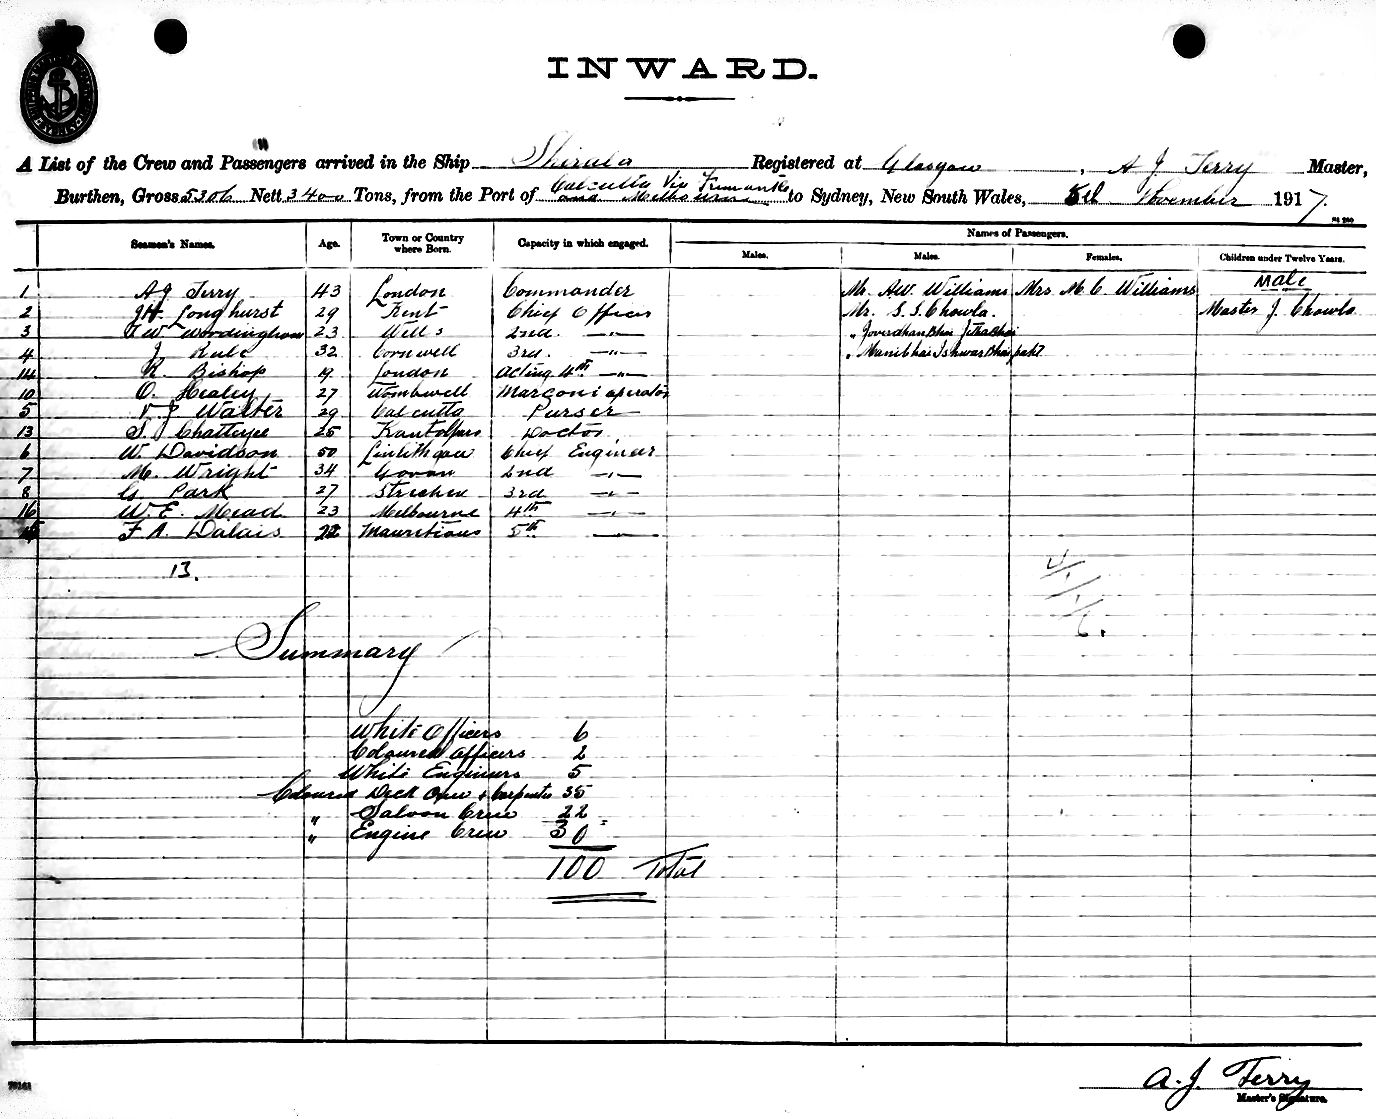 INWARD.
A List of the Crew and Passengers arrived in the Ship Shirala Registered at Glasgow, A J Terry Master,
Burthen, Gross 5306 Nett 3400 Tons, from the Port of Calcutta Via Fremantle and Melbourne to Sydney, New South Wales, 5th November 1917.
Seamen's Names. Age. Town or Country where Born. Capacity in which engaged. Names of Passengers.
Males. Males. Females. Children under Twelve Years.
Male
1 A J Terry 43 London Commander Mr. A.W. Williams Mrs M. C. Williams
2 J H Longhurst 29 Kent Chief Officer Mr. S. S. Chowla. Master J. Chowla
3 Woodingham 23 Wells 2nd. —"— " Goverdhan Bhai Jetha Bhai
4 J Rule 32 Cornwell 3rd. —"— " Manibhai Ishwar Bhai
14 R. Bishop 19 London Acting 4th —"—
10 O. Healey 27 Wombwell Marconi operator
5 V J Walter 29 Calcutta Purser
13 S. Chatterjee 25 Doctor
6 W Davidson 50 Linlithgow Chief Engineer
7 M. Wright 34 Govan 2nd —"—
8 G Park 27 Strichen 3rd —"—
16 W. E. Mead 23 Melbourne 4th —"—
F A. Dalais 22 Mauritious 5th —"—
13.
4/1/1/6.
Summary
White Officers 6
Coloured Officers 2
White Engineers 5
Coloured Deck Crew & Carpenter 35
" Saloon Crew 22
" Engine Crew 30
100 Total
A. J. Terry
Master's Signature.